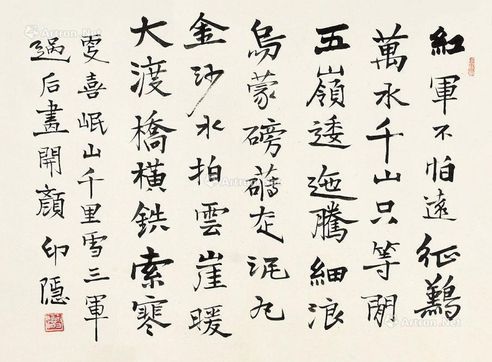 紅軍不怕遠征難
萬水千山只等閒
五嶺逶迤騰細浪
烏蒙磅礴走泥丸
金沙水拍雲崖暖
大渡橋橫鉄索寒
更喜岷山千里雪三軍
過后盡開顏 印隱